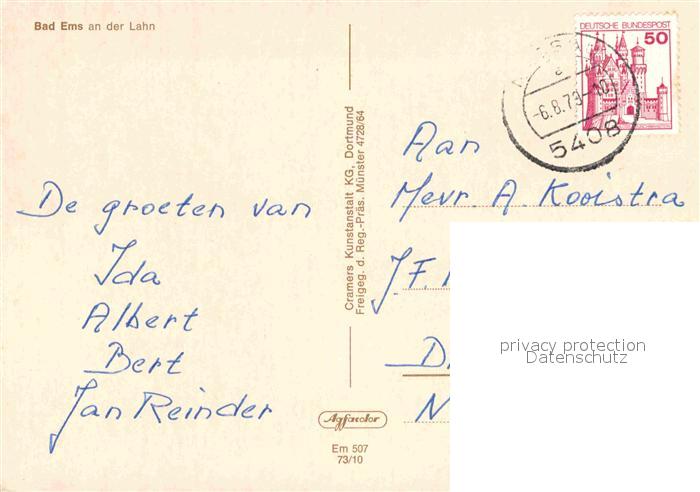 Bad Ems an der Lahn
DEUTSCHE BUNDESPOST
50
-6.8.79-10
5408
Aan
Mevr. A. Kooistra
J.F.
D
N
De groeten van
Ida
Albert
Bert
Jan Reinder
Cramers Kunstanstalt KG, Dortmund
Freigeg. d. Reg.-Präs. Münster 4728/64
Agfacolor
Em 507
73/10
privacy protection
Datenschutz